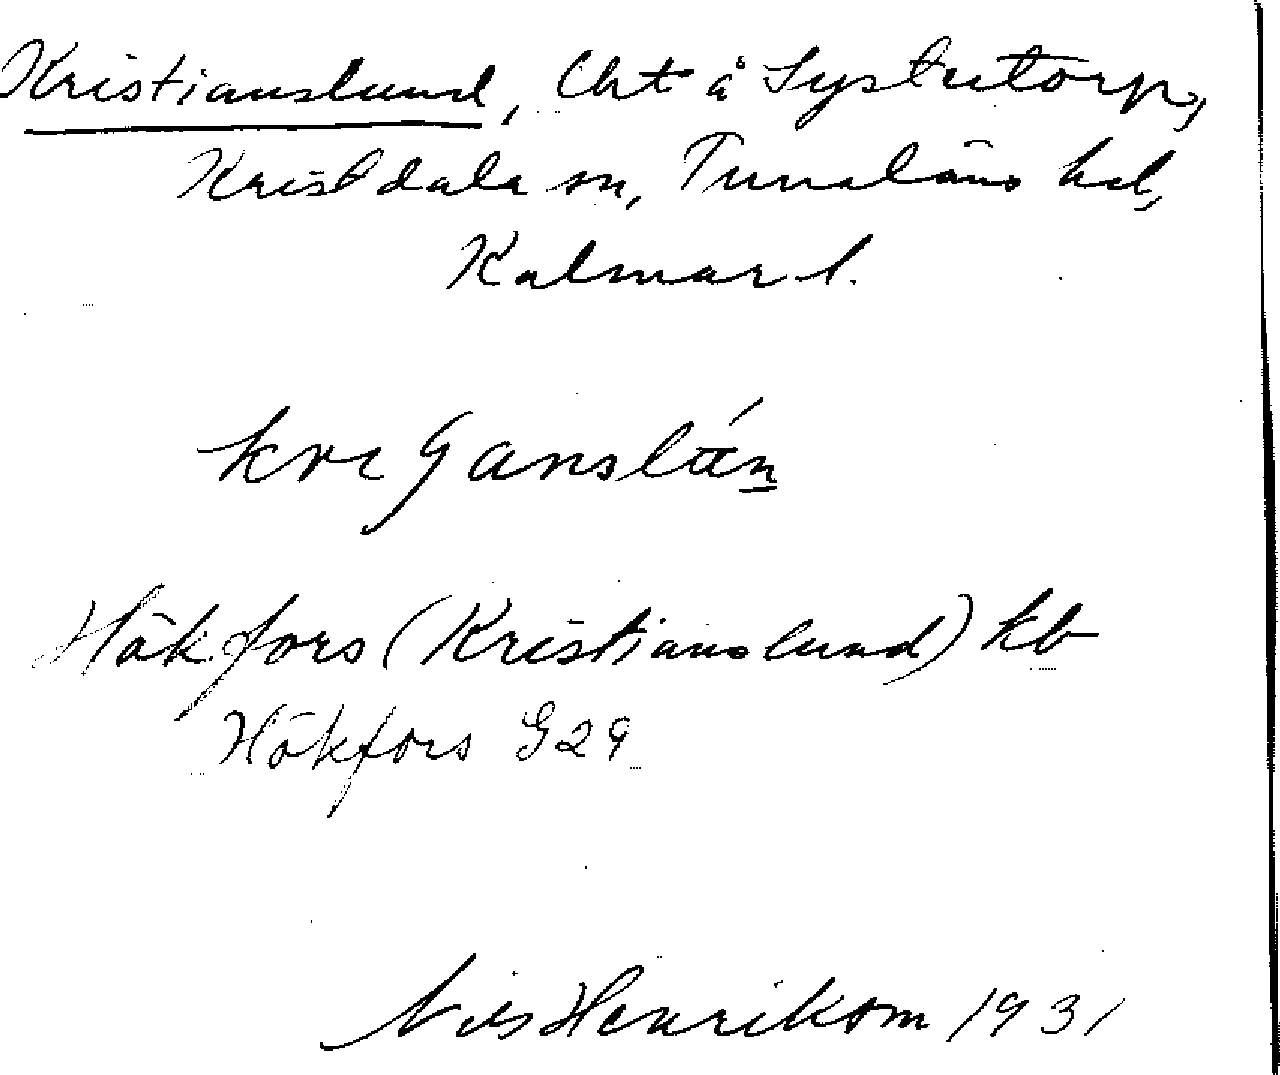 Kristianslund, Lht å Systertorp,
Kristdala sn, Tunaläns hd,
Kalmar l.
Hökfors (Kristianslund) kb
Hökfors G29
Nils Henrikson 1931